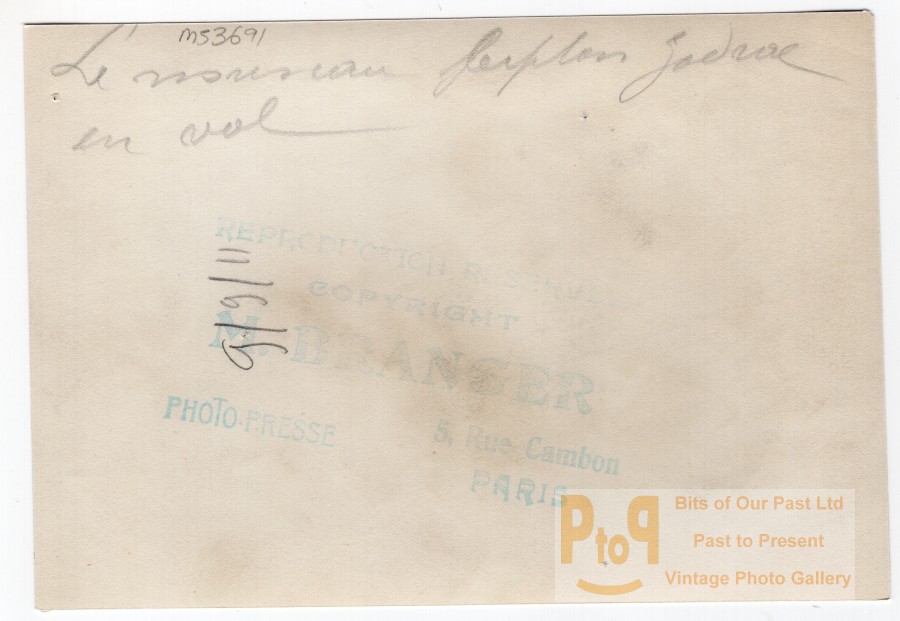 M53691
Le nouveau
en vol
9/9/11
REPRODUCTION RESERVEE
COPYRIGHT
M. BRANGER
PHOTO-PRESSE
5, Rue Cambon
PARIS
PtoP
Bits of Our Past Ltd
Past to Present
Vintage Photo Gallery